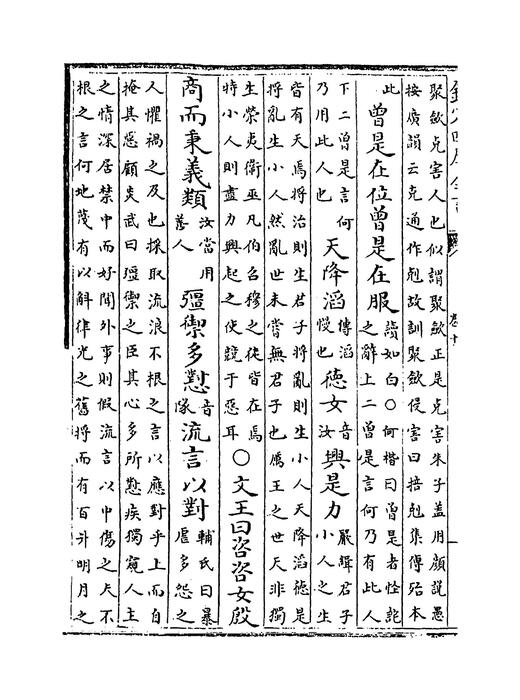 聚歛克害人也似謂聚歛正是克害朱子蓋用顏說愚
按廣韻云克通作剋故訓聚歛侵害曰掊剋集傳殆本
此曾是在位曾是在服讀如白○何楷曰曾是者怪詫之辭上二曾是言何乃有此人
下二曾是言何乃用此人也天降滔傳滔慢也德女音汝興是力嚴緝君子小人之生
皆有天焉將治則生君子將亂則生小人天降滔德是
將亂生小人然亂世未嘗無君子也厲王之世天非獨
生榮夷衛巫凡伯召穆之徒皆在焉時小人則盡力興起之使競于惡耳○文王曰咨咨女殷
商而秉義類汝當用善人彊禦多懟音隊流言以對輔氏曰暴虐多怨之
人懼禍之及也採取流浪不根之言以應對乎上而自
掩其惡顧炎武曰彊禦之臣其心多所懟疾獨窺人主
之情深居禁中而好聞外事則假流言以中傷之夫不
根之言何地蔑有以斛律光之舊將而有百升明月之